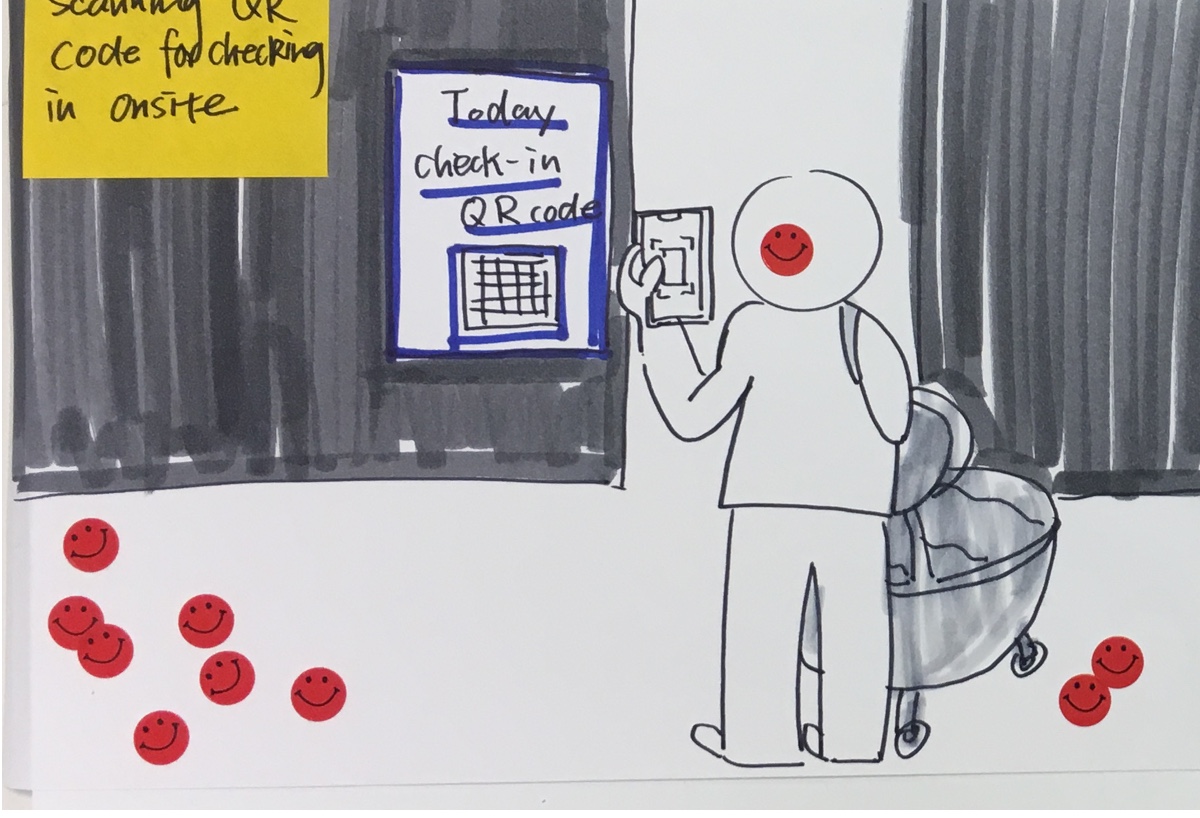 scanning QR
code for checking
in onsite
Today
check-in
QR code